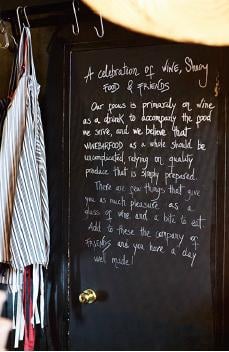 A celebration of WINE, Sherry
FOOD & FRIENDS
Our focus is primarily on wine
as a drink to accompany the food
we serve, and we believe that
WINEBARFOOD as a whole should be
uncomplicated relying on quality
produce that is simply prepared.
There are few things that give
you as much pleasure as a
glass of wine and a bite to eat.
Add to these the company of
FRIENDS and you have a day
well made!